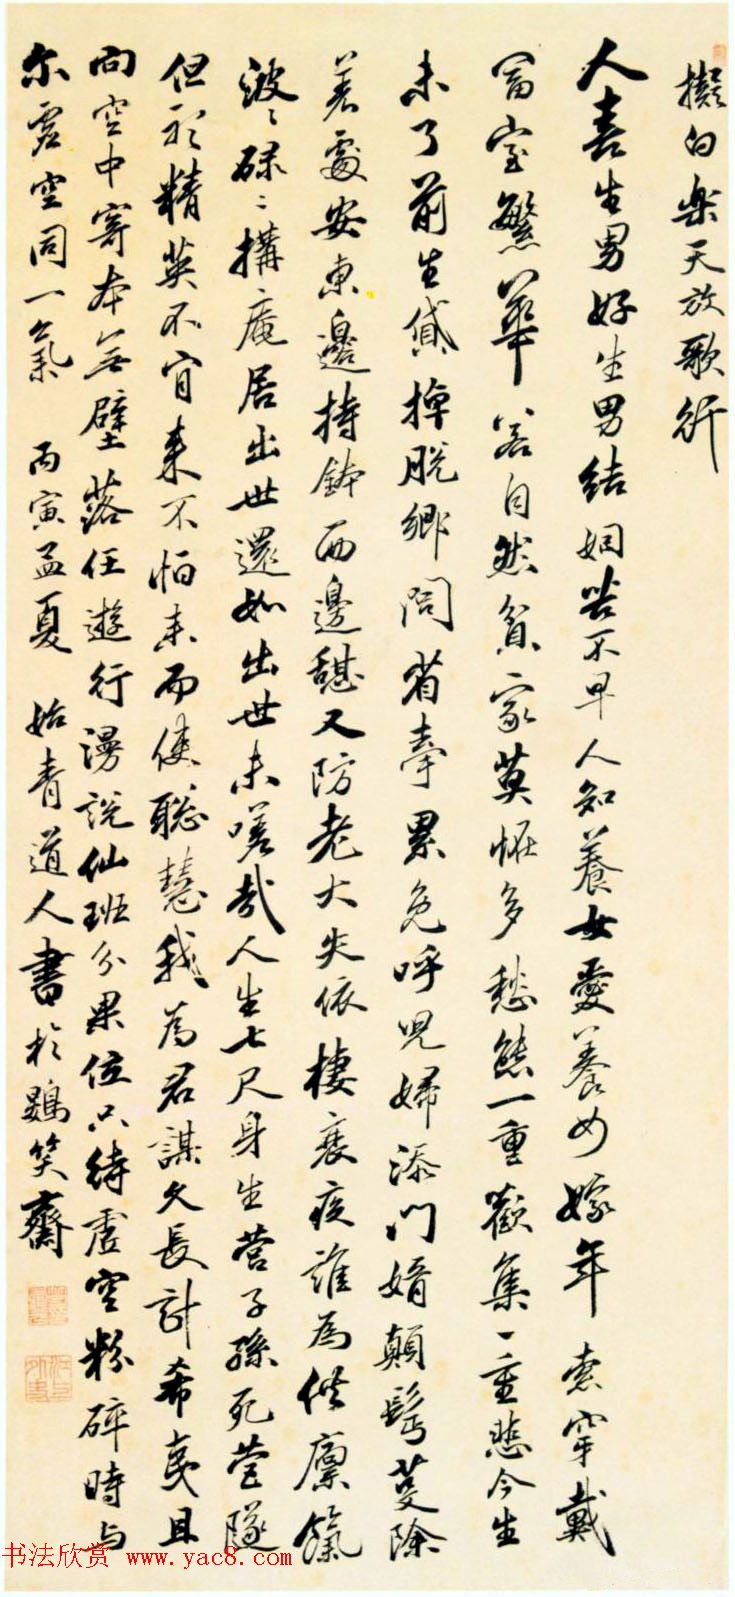 擬白樂天放歌行
人喜生男好生男結姻苦不早人知養女愛養女嫁年索穿戴
富室繁華若自然貧家莫惟多愁態一重歡集一重悲今生
未了前生貸掉脫鄉問省牽累免呼兒婦添門婿顛髩蔓除
若處安東邊持鉢西邊甚又防老大失依棲衰疾誰為供廩餼
波〻碌〻構庵居出世還如出世未嗟哉人生七尺身生營子孫死營隧
但聆精英不肎來不怕來而使聰慧我為君謀久長計希夷且
向空中寄本無壁落任遊行漫說仙班分果位只待虛空粉碎時与
尔虛空同一氣 丙寅孟夏 始青道人書於鷃笑齋
书法欣赏 www.yac8.com